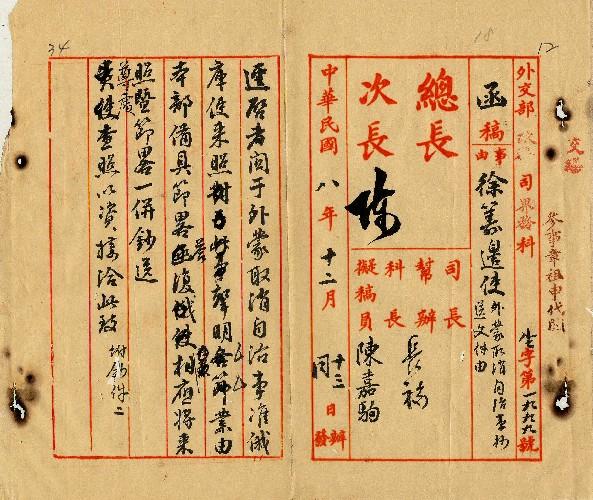 34
18
12
外交部 政 司 界務科
生字第一九九九號
交際
參事章祖申代閱
函稿
事由
徐籌邊使外蒙取消自治事抄送文件由
總長
次長
陳
司長
幫辦
長福
科長
擬稿員
陳嘉駒
中華民國八年十二月十三日辦
同 發
逕啟者關于外蒙取消自治事准俄
庫使來照對於此事聲明各節業由
本部備具節畧函復俄使相應將來
照暨節畧一併鈔送
貴使查照以資接洽此致
附鈔件二